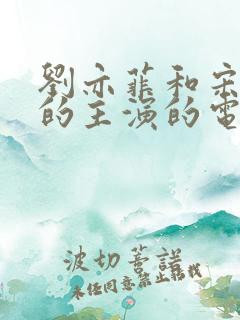 劉亦菲和宋
的主演的電
波切善諾
未經同意禁止轉載